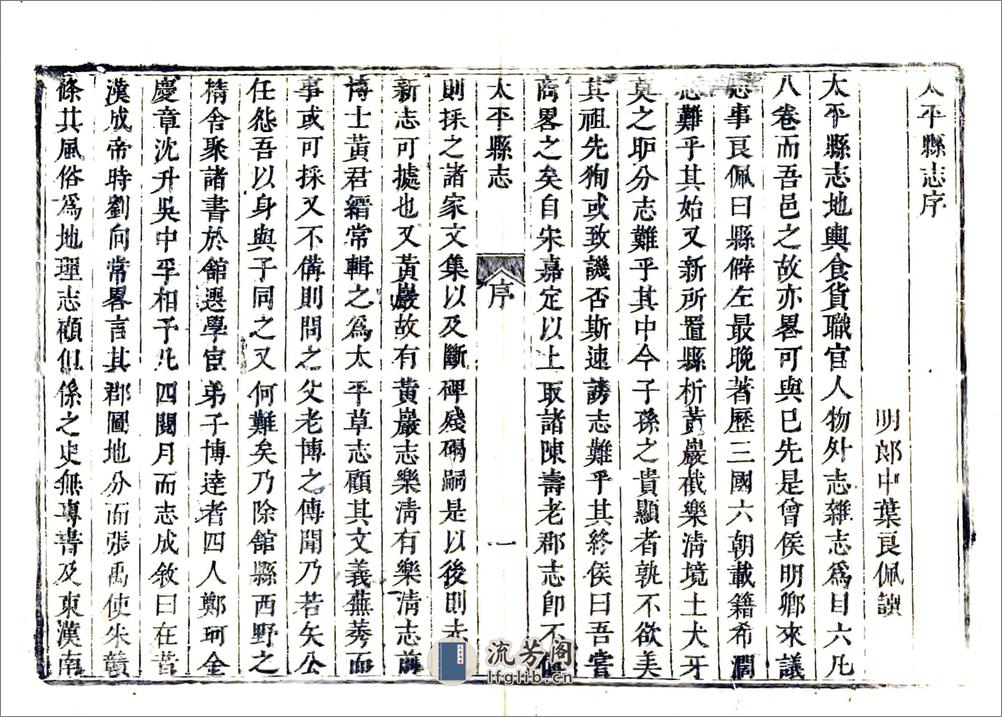 太平縣志序
明郎中葉良佩譔
太平縣志地輿食貨職官人物外志雜志爲目六凡
八卷而吾邑之故亦畧可與已先是曾侯明卿來議
志事良佩曰縣僻左最晚著歷三國六朝載籍希濶
志難乎其始又新所置縣析黃巖併樂清境土犬牙
莫之明分志難乎其中今子孫之貴顯者孰不欲美
其祖先狥或致譏否斯速謗志難乎其終侯曰吾嘗
商畧之矣自宋嘉定以上取諸陳壽老郡志卽不備
太平縣志
序
一
則採之諸家文集以及斷碑殘碣嗣是以後則赤
新志可據也又黃巖故有黃巖志樂清有樂清志前
博士黃君縉常輯之爲太平草志顧其文義蕪莠而
事或可採又不備則問之父老博之傳聞乃若矢公
任怨吾以身與子同之又何難矣乃除館縣西野之
精舍聚諸書於館選學官弟子博達者四人鄭珂金
慶章沈升吳中孚相予凡四閱月而志成敘曰在昔
漢成帝時劉向常畧言其郡圖地分而張禹使朱贛
條其風俗爲地理志顧但係之史無專書及東漢南
流芳阁
lfglib.cn